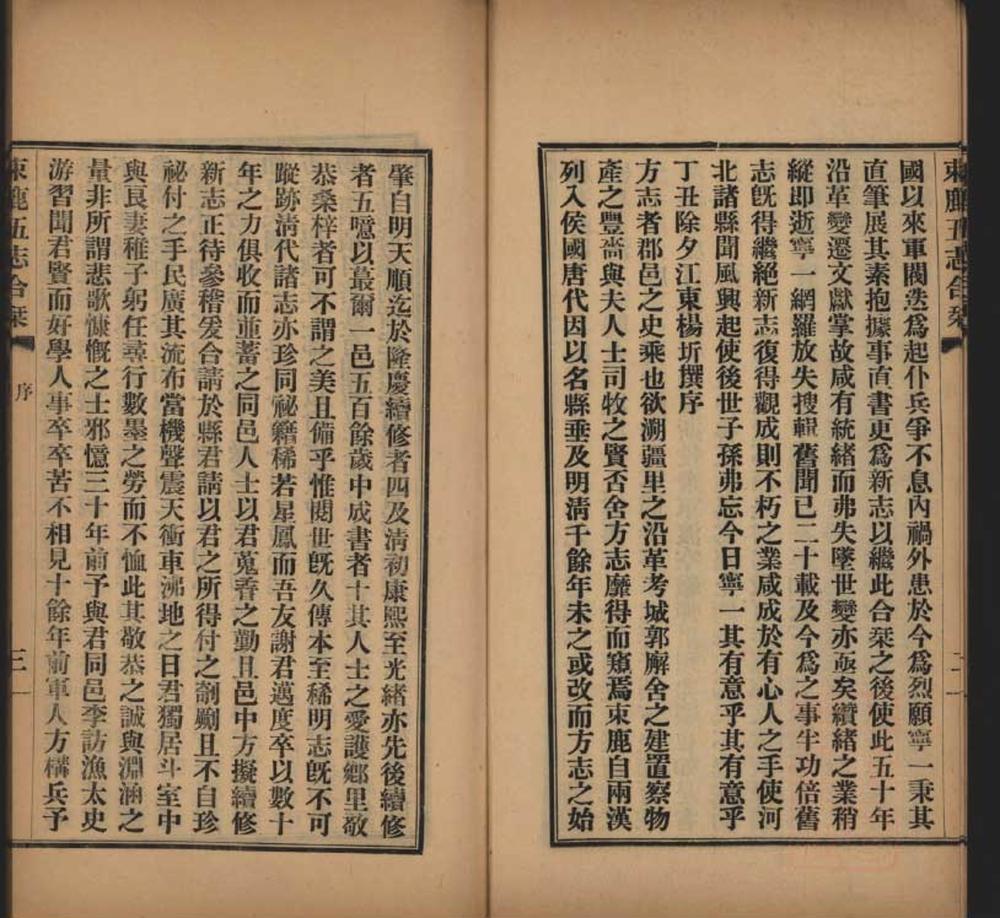 束鹿五志合栞
二
國以來軍閥迭爲起仆兵爭不息內禍外患於今爲烈願寧一秉其
直筆展其素抱據事直書更爲新志以繼此合栞之後使此五十年
沿革變遷文獻掌故咸有統緒而弗失墜世變亦亟矣纘緒之業稍
縱即逝寧一網羅放失搜輯舊聞已二十載及今爲之事半功倍舊
志既得繼絕新志復得觀成則不朽之業咸成於有心人之手使河
北諸縣聞風興起使後世子孫弗忘今日寧一其有意乎其有意乎
丁丑除夕江東楊圻撰序
方志者郡邑之史乘也欲溯疆里之沿革考城郭廨舍之建置察物
產之豐嗇與夫人士司牧之賢否舍方志靡得而窺焉束鹿自兩漢
列入侯國唐代因以名縣垂及明清千餘年未之或改而方志之始
肇自明天順迄於隆慶續修者四及清初康熙至光緒亦先後續修
者五噫以蕞爾一邑五百餘歲中成書者十其人士之愛護鄉里敬
恭桑梓者可不謂之美且備乎惟閱世既久傳本至稀明志既不可
蹤跡清代諸志亦珍同祕籍稀若星鳳而吾友謝君邁度卒以數十
年之力俱收而並蓄之同邑人士以君蒐聚之勤且邑中方擬續修
新志正待參稽爰合請於縣君請以君之所得付之剞劂且不自珍
祕付之手民廣其流布當機聲震天衝車沸地之日君獨居斗室中
與良妻稚子躬任尋行數墨之勞而不恤此其敬恭之誠與淵涵之
量非所謂悲歌慷慨之士邪憶三十年前予與君同邑李訪漁太史
游習聞君賢而好學人事卒卒苦不相見十餘年前軍人方構兵予
束鹿五志合栞
序
三